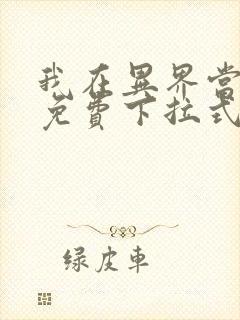 我在異界當
免費下拉式
绿皮車